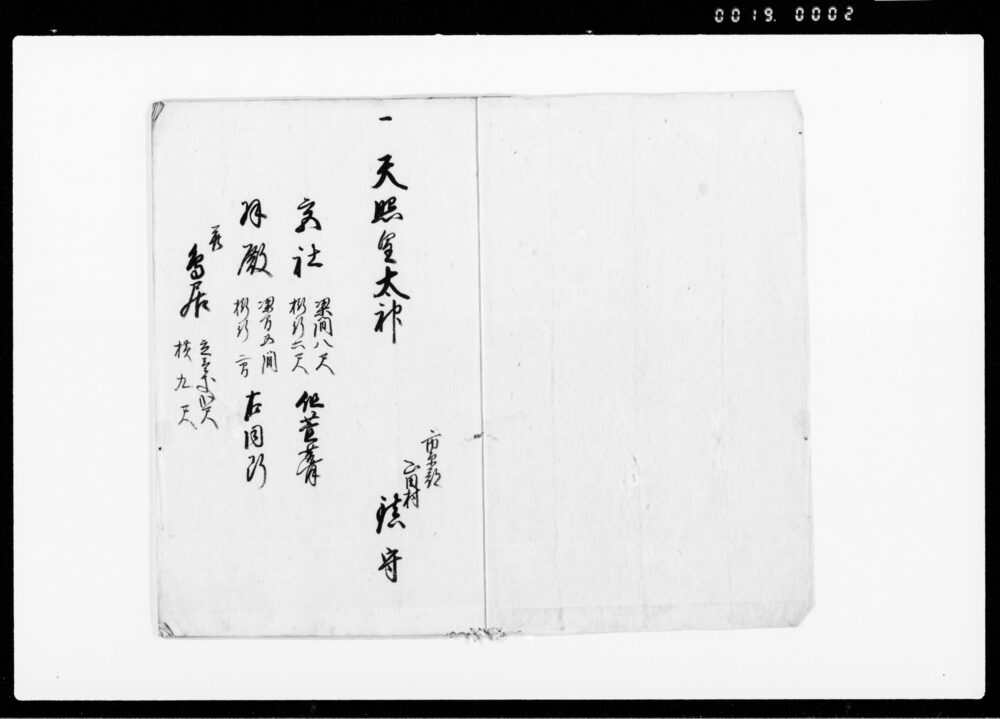 0019.0002
一 天照皇太神
市東郡
正田村
鎮守
宮社 梁間八尺
桁行六尺 但萱葺
拝殿 梁間五間
桁行 右同断
鳥居
横九尺